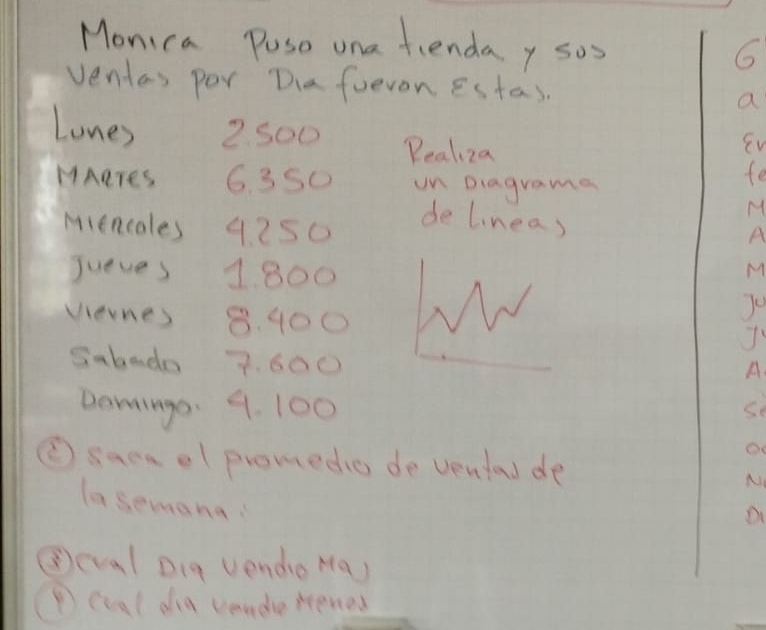 Monica Puso una tienda y sus
ventas por Dia fueron Estas.
Lunes 2.500
MARTES 6.350
MIERCOLES 4.250
Jueves 1.800
viernes 8.400
Sabado 7.600
Domingo. 4.100
Realiza
un Diagrama
de lineas
② saca el promedio de ventas de
la semana.
③ cual Dia vendio Mas
④ cual dia vendio Menos
G
a
En
fe
M
A
M
Ju
Ju
A
Se
oc
No
Di